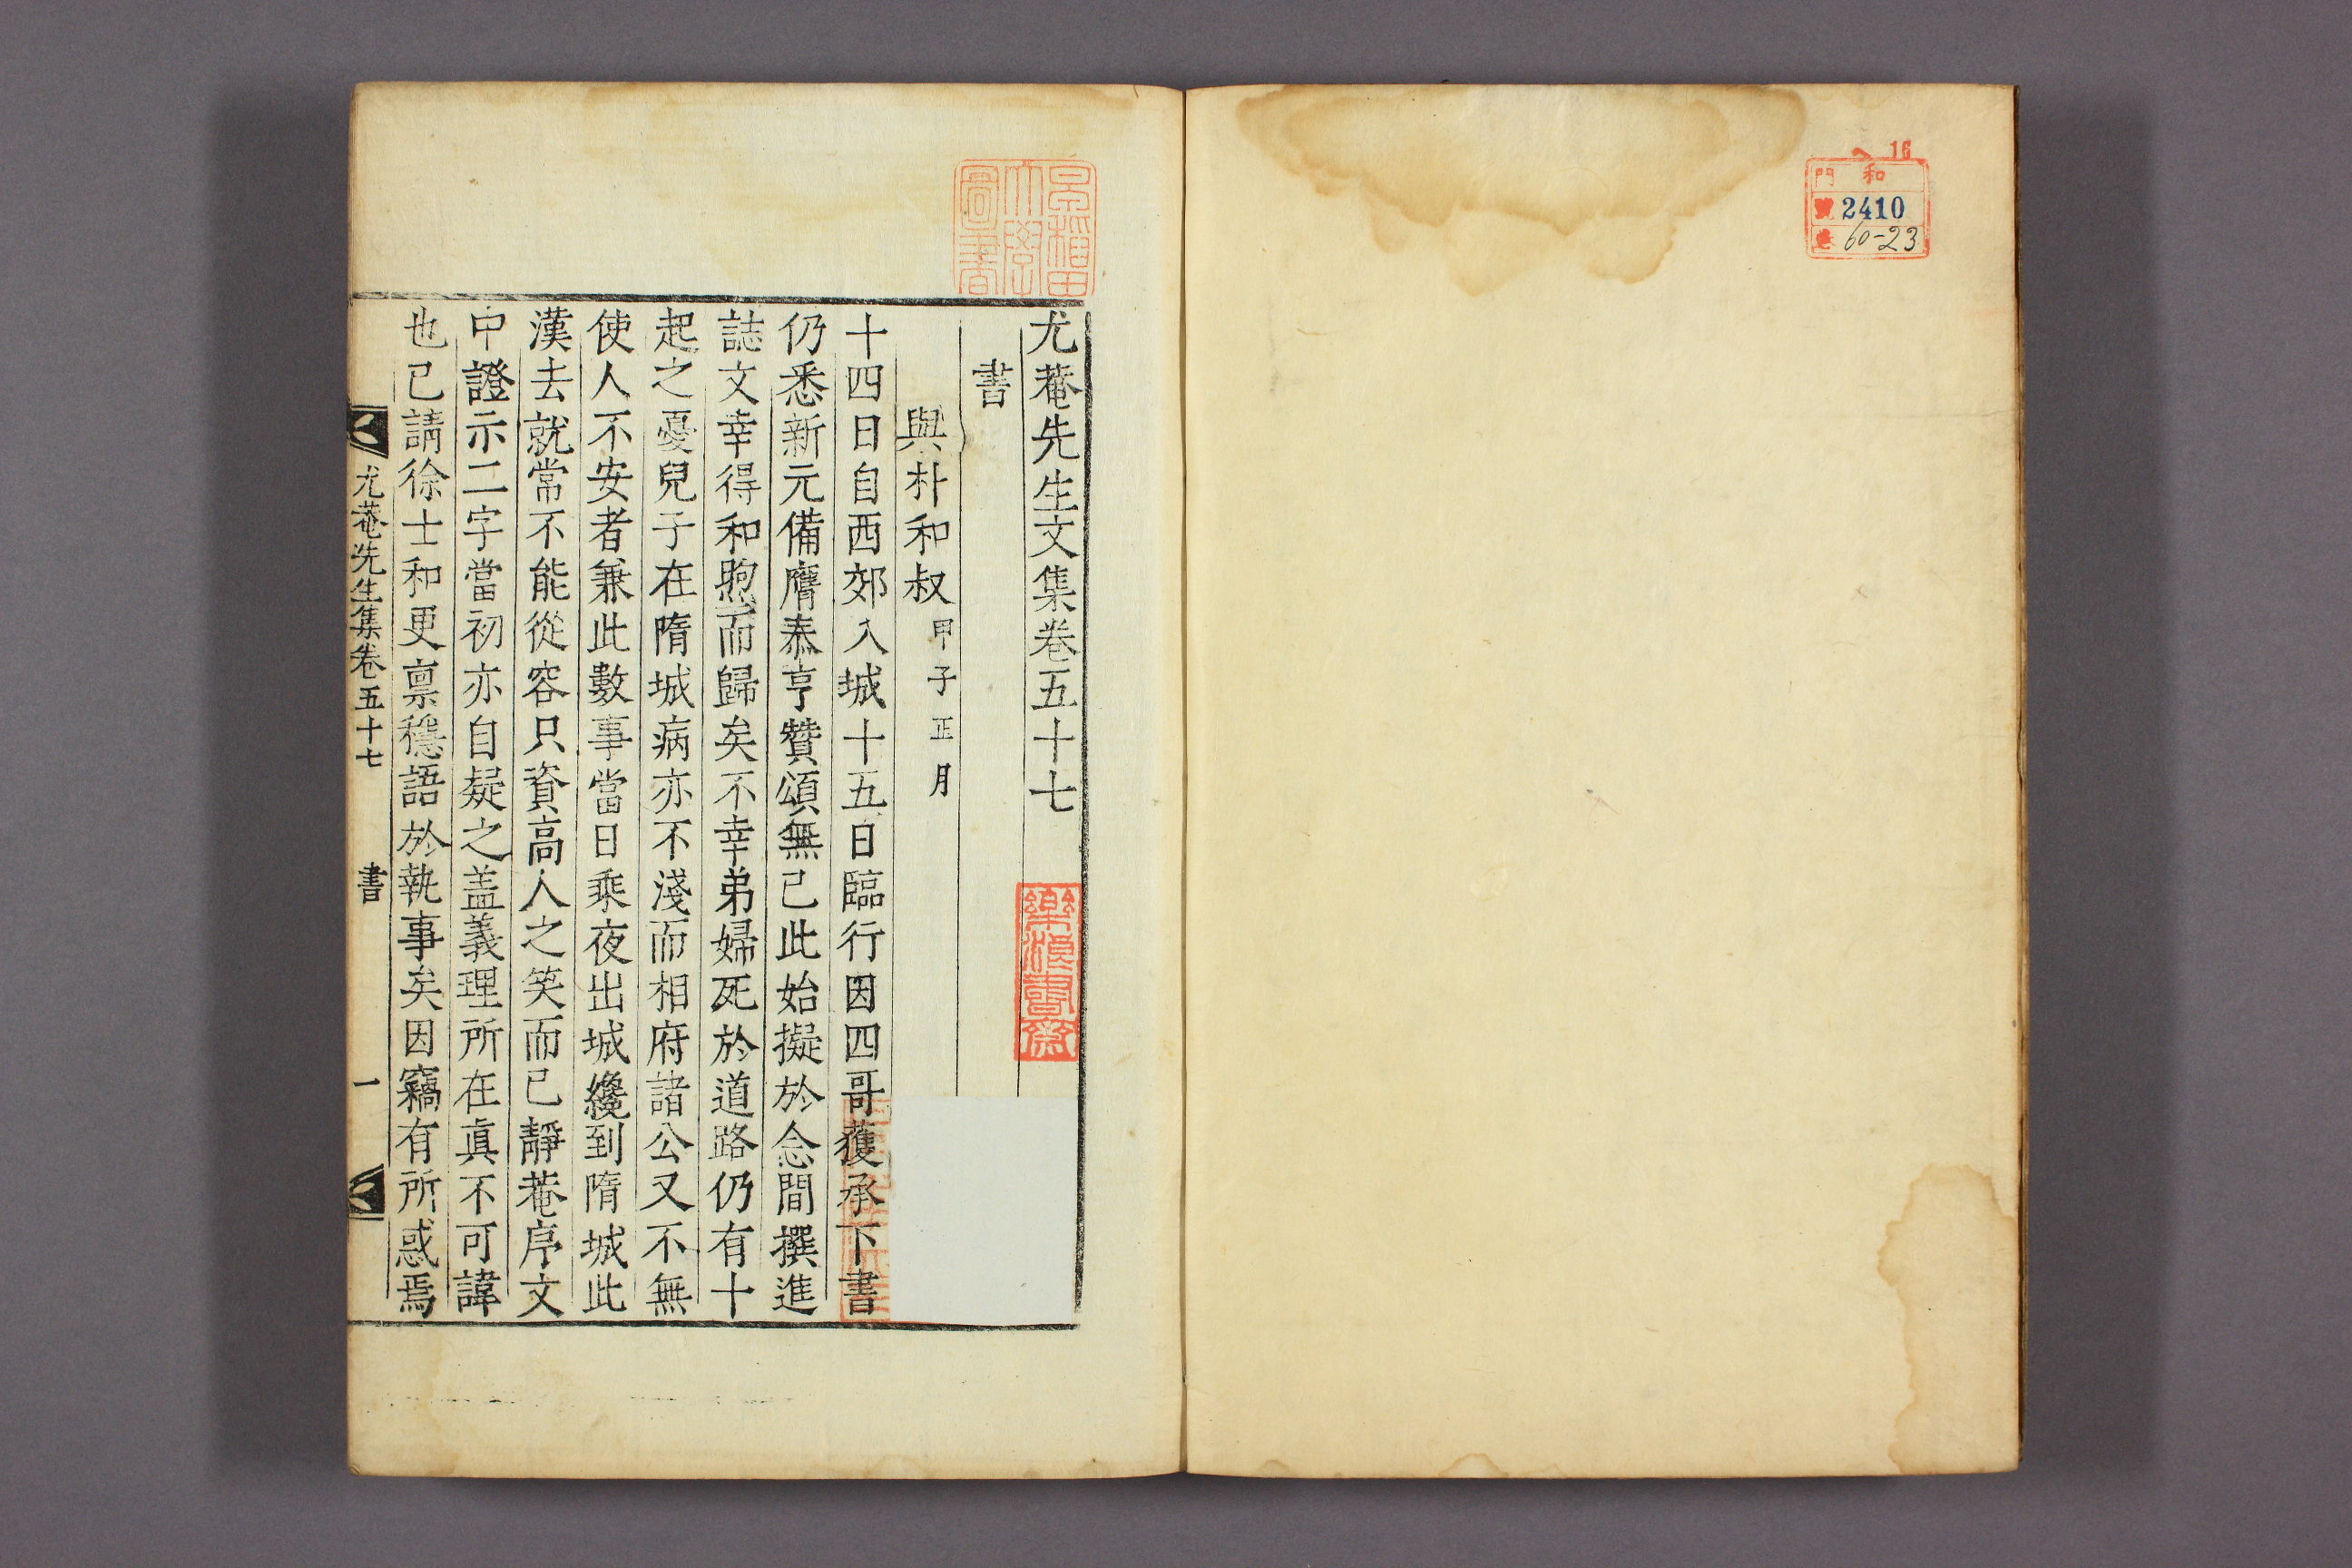 ヘ 16
和 門
號 2410
巻 60-23
早稲田大學圖書
尤菴先生文集卷五十七
樂浪書齋
書
與朴和叔甲子正月
十四日自西郊入城十五日臨行因四哥獲承下書
仍悉新元備膺泰亨贊頌無已此始擬於念間撰進
誌文幸得和煦而歸矣不幸弟婦死於道路仍有十
起之憂兒子在隋城病亦不淺而相府諸公又不無
使人不安者兼此數事當日乘夜出城纔到隋城此
漢去就常不能從容只資高人之笑而已靜菴序文
中證示二字當初亦自疑之盖義理所在眞不可諱
也已請徐士和更禀穩語於執事矣因竊有所惑焉
尤菴先生集卷五十七 書 一